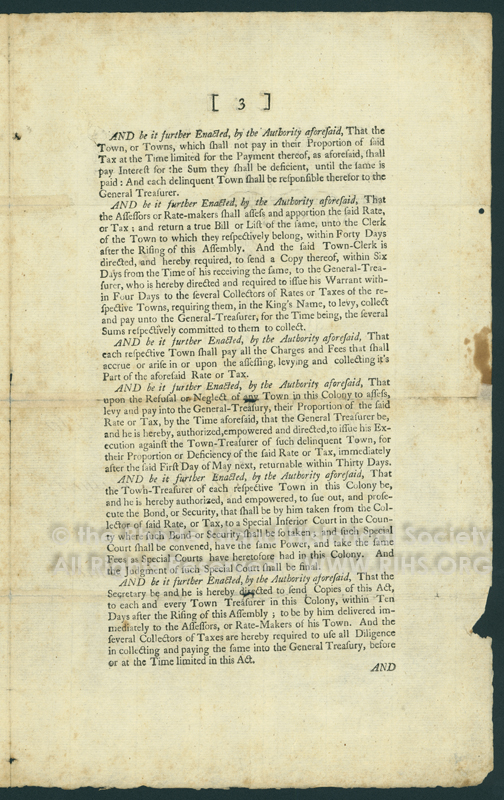 [ 3 ]
AND be it further Enacted, by the Authority aforesaid, That the
Town, or Towns, which shall not pay in their Proportion of said
Tax at the Time limited for the Payment thereof, as aforesaid, shall
pay Interest for the Sum they shall be deficient, until the same is
paid: And each delinquent Town shall be responsible therefor to the
General Treasurer.
AND be it further Enacted, by the Authority aforesaid, That
the Assessors or Rate-makers shall assess and apportion the said Rate,
or Tax; and return a true Bill or List of the same, unto the Clerk
of the Town to which they respectively belong, within Forty Days
after the Rising of this Assembly. And the said Town-Clerk is
directed, and hereby required, to send a Copy thereof, within Six
Days from the Time of his receiving the same, to the General-Trea-
surer, who is hereby directed and required to issue his Warrant with-
in Four Days to the several Collectors of Rates or Taxes of the re-
spective Towns, requiring them, in the King's Name, to levy, collect
and pay unto the General-Treasurer, for the Time being, the several
Sums respectively committed to them to collect.
AND be it further Enacted, by the Authority aforesaid, That
each respective Town shall pay all the Charges and Fees that shall
accrue or arise in or upon the assessing, levying and collecting it's
Part of the aforesaid Rate or Tax.
AND be it further Enacted, by the Authority aforesaid, That
upon the Refusal or Neglect of any Town in this Colony to assess,
levy and pay into the General-Treasury, their Proportion of the said
Rate or Tax, by the Time aforesaid, that the General Treasurer be,
and he is hereby, authorized, empowered and directed, to issue his Ex-
ecution against the Town-Treasurer of such delinquent Town, for
their Proportion or Deficiency of the said Rate or Tax, immediately
after the said First Day of May next, returnable within Thirty Days.
AND be it further Enacted, by the Authority aforesaid, That
the Town-Treasurer of each respective Town in this Colony be,
and he is hereby authorized, and empowered, to sue out, and prose-
cute the Bond, or Security, that shall be by him taken from the Col-
lector of said Rate, or Tax, to a Special Inferior Court in the Coun-
ty where such Bond or Security shall be so taken; and such Special
Court shall be convened, have the same Power, and take the same
Fees as Special Courts have heretofore had in this Colony. And
the Judgment of such Special Court shall be final.
AND be it further Enacted, by the Authority aforesaid, That the
Secretary be and he is hereby directed to send Copies of this Act,
to each and every Town Treasurer in this Colony, within Ten
Days after the Rising of this Assembly; to be by him delivered im-
mediately to the Assessors, or Rate-Makers of his Town. And the
several Collectors of Taxes are hereby required to use all Diligence
in collecting and paying the same into the General Treasury, before
or at the Time limited in this Act.
AND